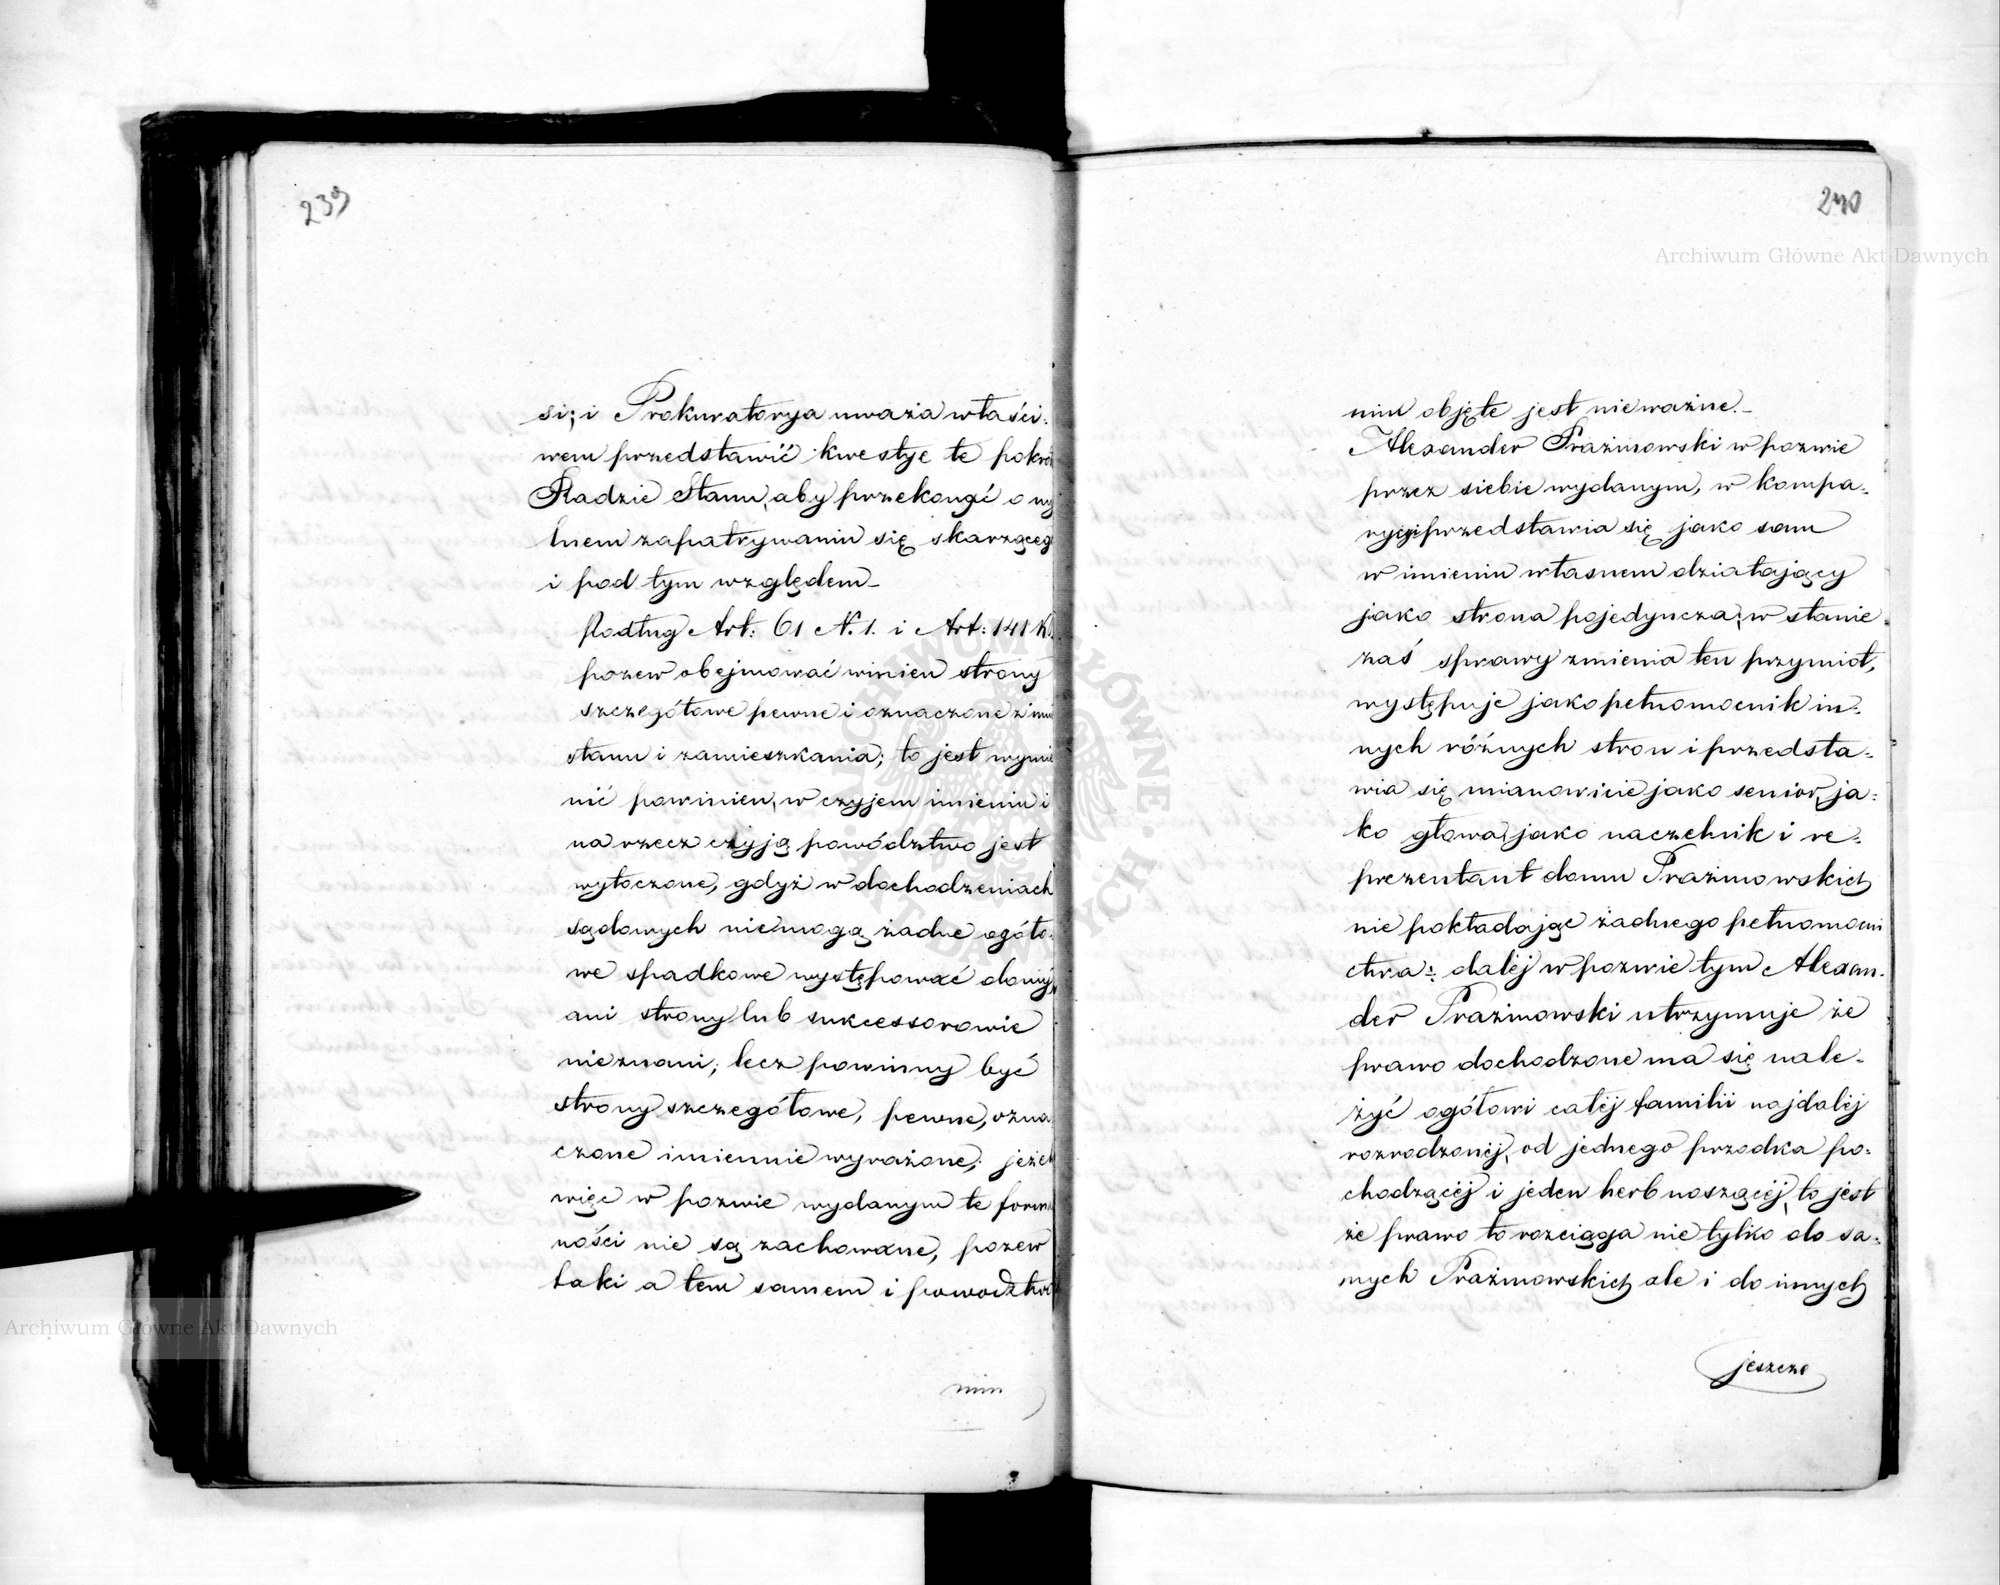 239
si; i Prokuratorya uważa właści:
wem przedstawić kwestye te pokró
Radzie Stanu, aby przekonać o my
lnem zapatrywaniu się skarżąceg
i pod tym względem_
Podług Art: 61 N. 1. i Art: 141 K.
pozew obejmować winien strony
szczegółowe pewne i oznaczone z imi
stanu i zamieszkania; to jest wymie
nić powinien, w czyjem imieniu i
na rzecz czyją powództwo jest
wytoczone, gdyż w dochodzeniach
sądowych niemogą żadne ogóło:
we spadkowe występować domy,
ani strony lub sukcessorowie
nieznani; lecz powinny być
strony szczegółowe, pewne, ozna
czone imiennie wyrażone; jeżel
więc w pozwie wydanym te form
ności nie są zachowane, pozew
taki a tem samem i powodztwo
nim
240
nim objęte jest nieważne._
Alexander Prażmowski w pozwie
przez siebie wydanym, w kompa:
rycyi przedstawia się jako sam
w imieniu własnem działający
jako strona pojedyncza; w stanie
zaś sprawy zmienia ten przymiot,
występuje jako pełnomocnik in:
nych różnych stron i przedsta:
wia się mianowicie jako senior, ja:
ko głowa, jako naczelnik i re:
prezentant domu Prażmowskich
nie pokładając żadnego pełnomocni
ctwa: daléj w pozwie tym Alexan:
der Prażmowski utrzymuje że
prawo dochodzone ma się nale:
żyć ogółowi całéj familii najdaléj
rozrodzonéj, od jednego przodka po:
chodzącéj i jeden herb noszącéj, to jest
że prawo to rozciąga nie tylko do sa:
mych Prażmowskich ale i do innych
jeszcze
Archiwum Główne Akt Dawnych
Archiwum Główne Akt Dawnych